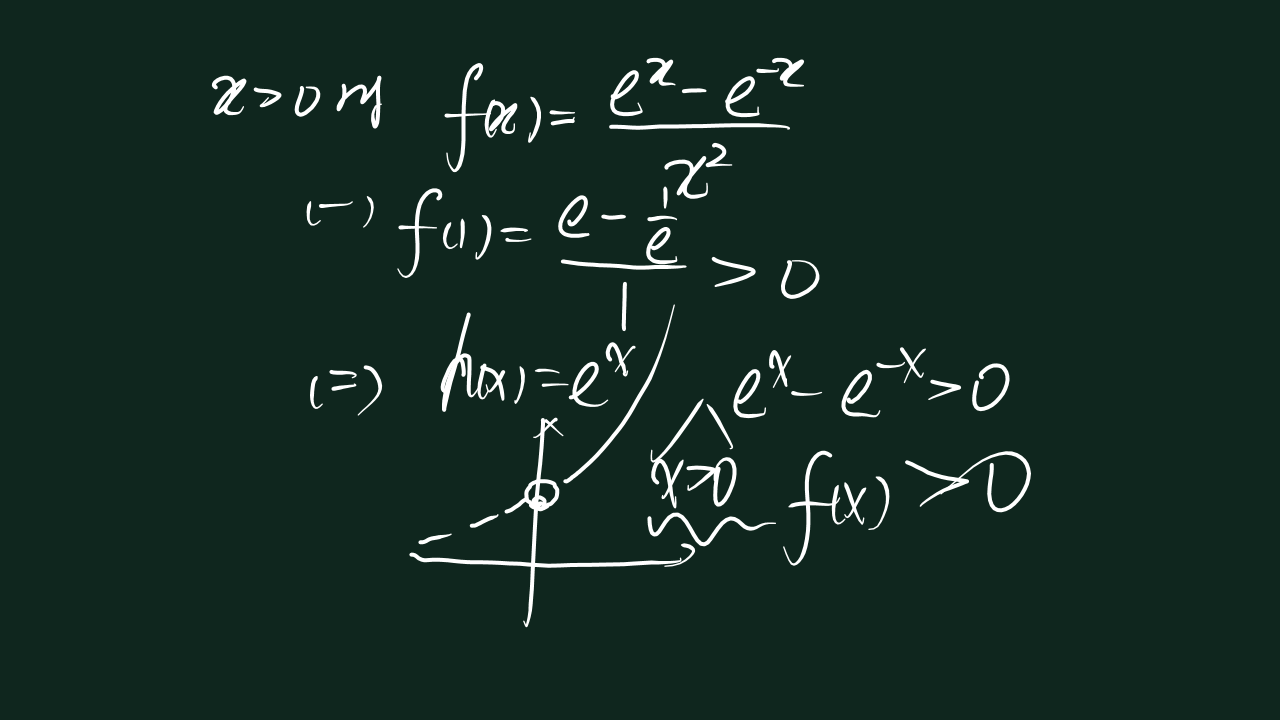 x>0 f(x)= (e^x - e^-x)/x²
(一) f(1)= (e - 1/e)/1 > 0
(二) h(x)=e^x e^x - e^-x > 0
x>0 f(x) > 0